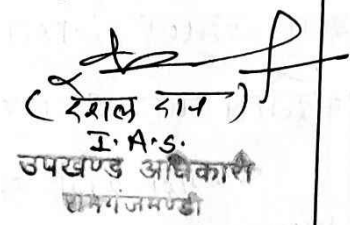 ( देशल दान )
I.A.S.
उपखण्ड अधिकारी
रामगंजमण्डी